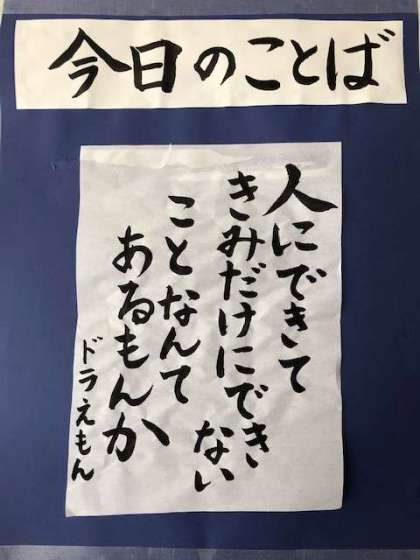 今日のことば
人にできて
きみだけにできない
ことなんて
あるもんか
ドラえもん